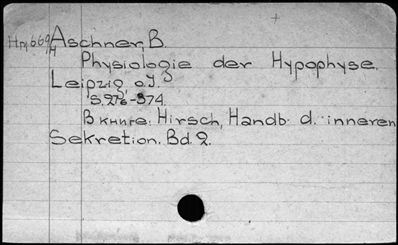 Aschner, B.
Physiologie der Hypophyse.
Leipzig, o. J.
S. 276-374.
В книге: Hirsch, Handb. d. inneren
Sekretion. Bd. 2.